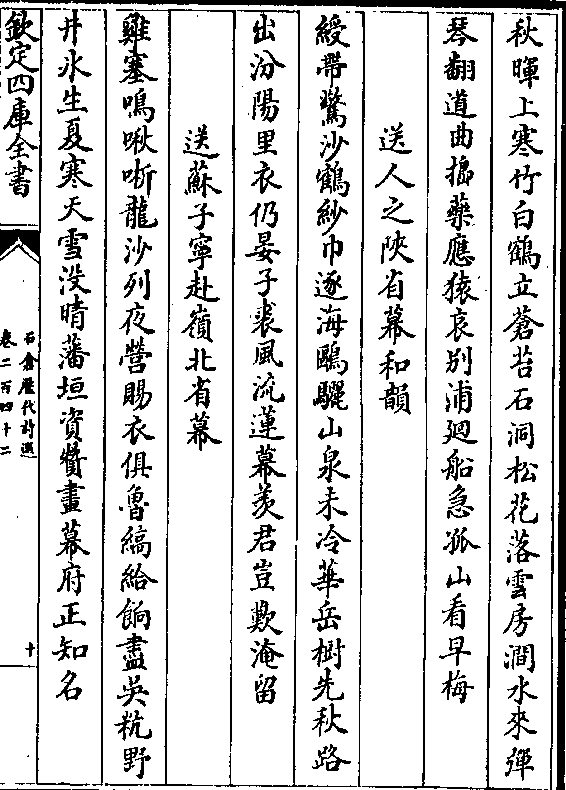 秋暉上寒竹白鶴立蒼苔石洞松花落雲房澗水來彈
琴翻道曲搗藥應猿哀別浦廻船急孤山看早梅
送人之陝省幕和韻
綬帶驚沙鶴紗巾逐海鷗驪山泉未冷華岳樹先秋路
出汾陽里衣仍晏子裘風流蓮幕羡君豈歎淹留
送蘇子寧赴嶺北省幕
雞塞鳴啾哳龍沙列夜營賜衣俱魯縞給餉盡吳秔野
井氷生夏寒天雪没晴藩垣資贊畫幕府正知名
欽定四庫全書
石倉歷代詩選
卷二百四十二
十